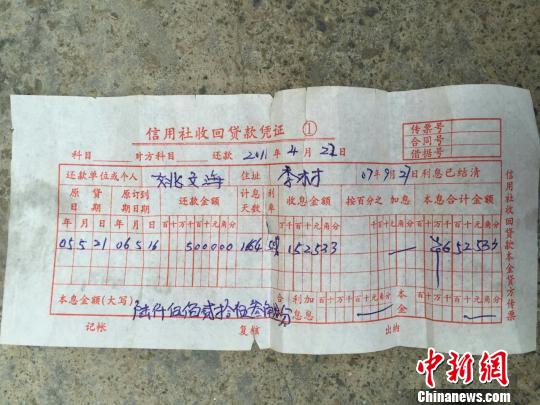 信用社收回贷款凭证 ①
传票号
合同号
借据号
科目 对方科目 还款 2011年4月22日
还款单位或个人 文海 住址 李村 07年9月21日利息已结清
原贷日期 原订到期日期 还款金额 计息天数 利率 收息金额 按百分之 加息 本息合计金额
年月日 年月日 百十万千百十元角分 百十万千百十元角分 千百十元角分 百十万千百十元角分
05 5 21 06 5 16 500000 152533 ¥652533
本息金额(大写) 陆仟伍佰贰拾伍 合利息 加息 百十万千百十元角分 本金 百十万千百十元角分
记帐 复核 出纳
信用社收回贷款本金贷方传票
中新网
WWW.CHINANEWS.COM